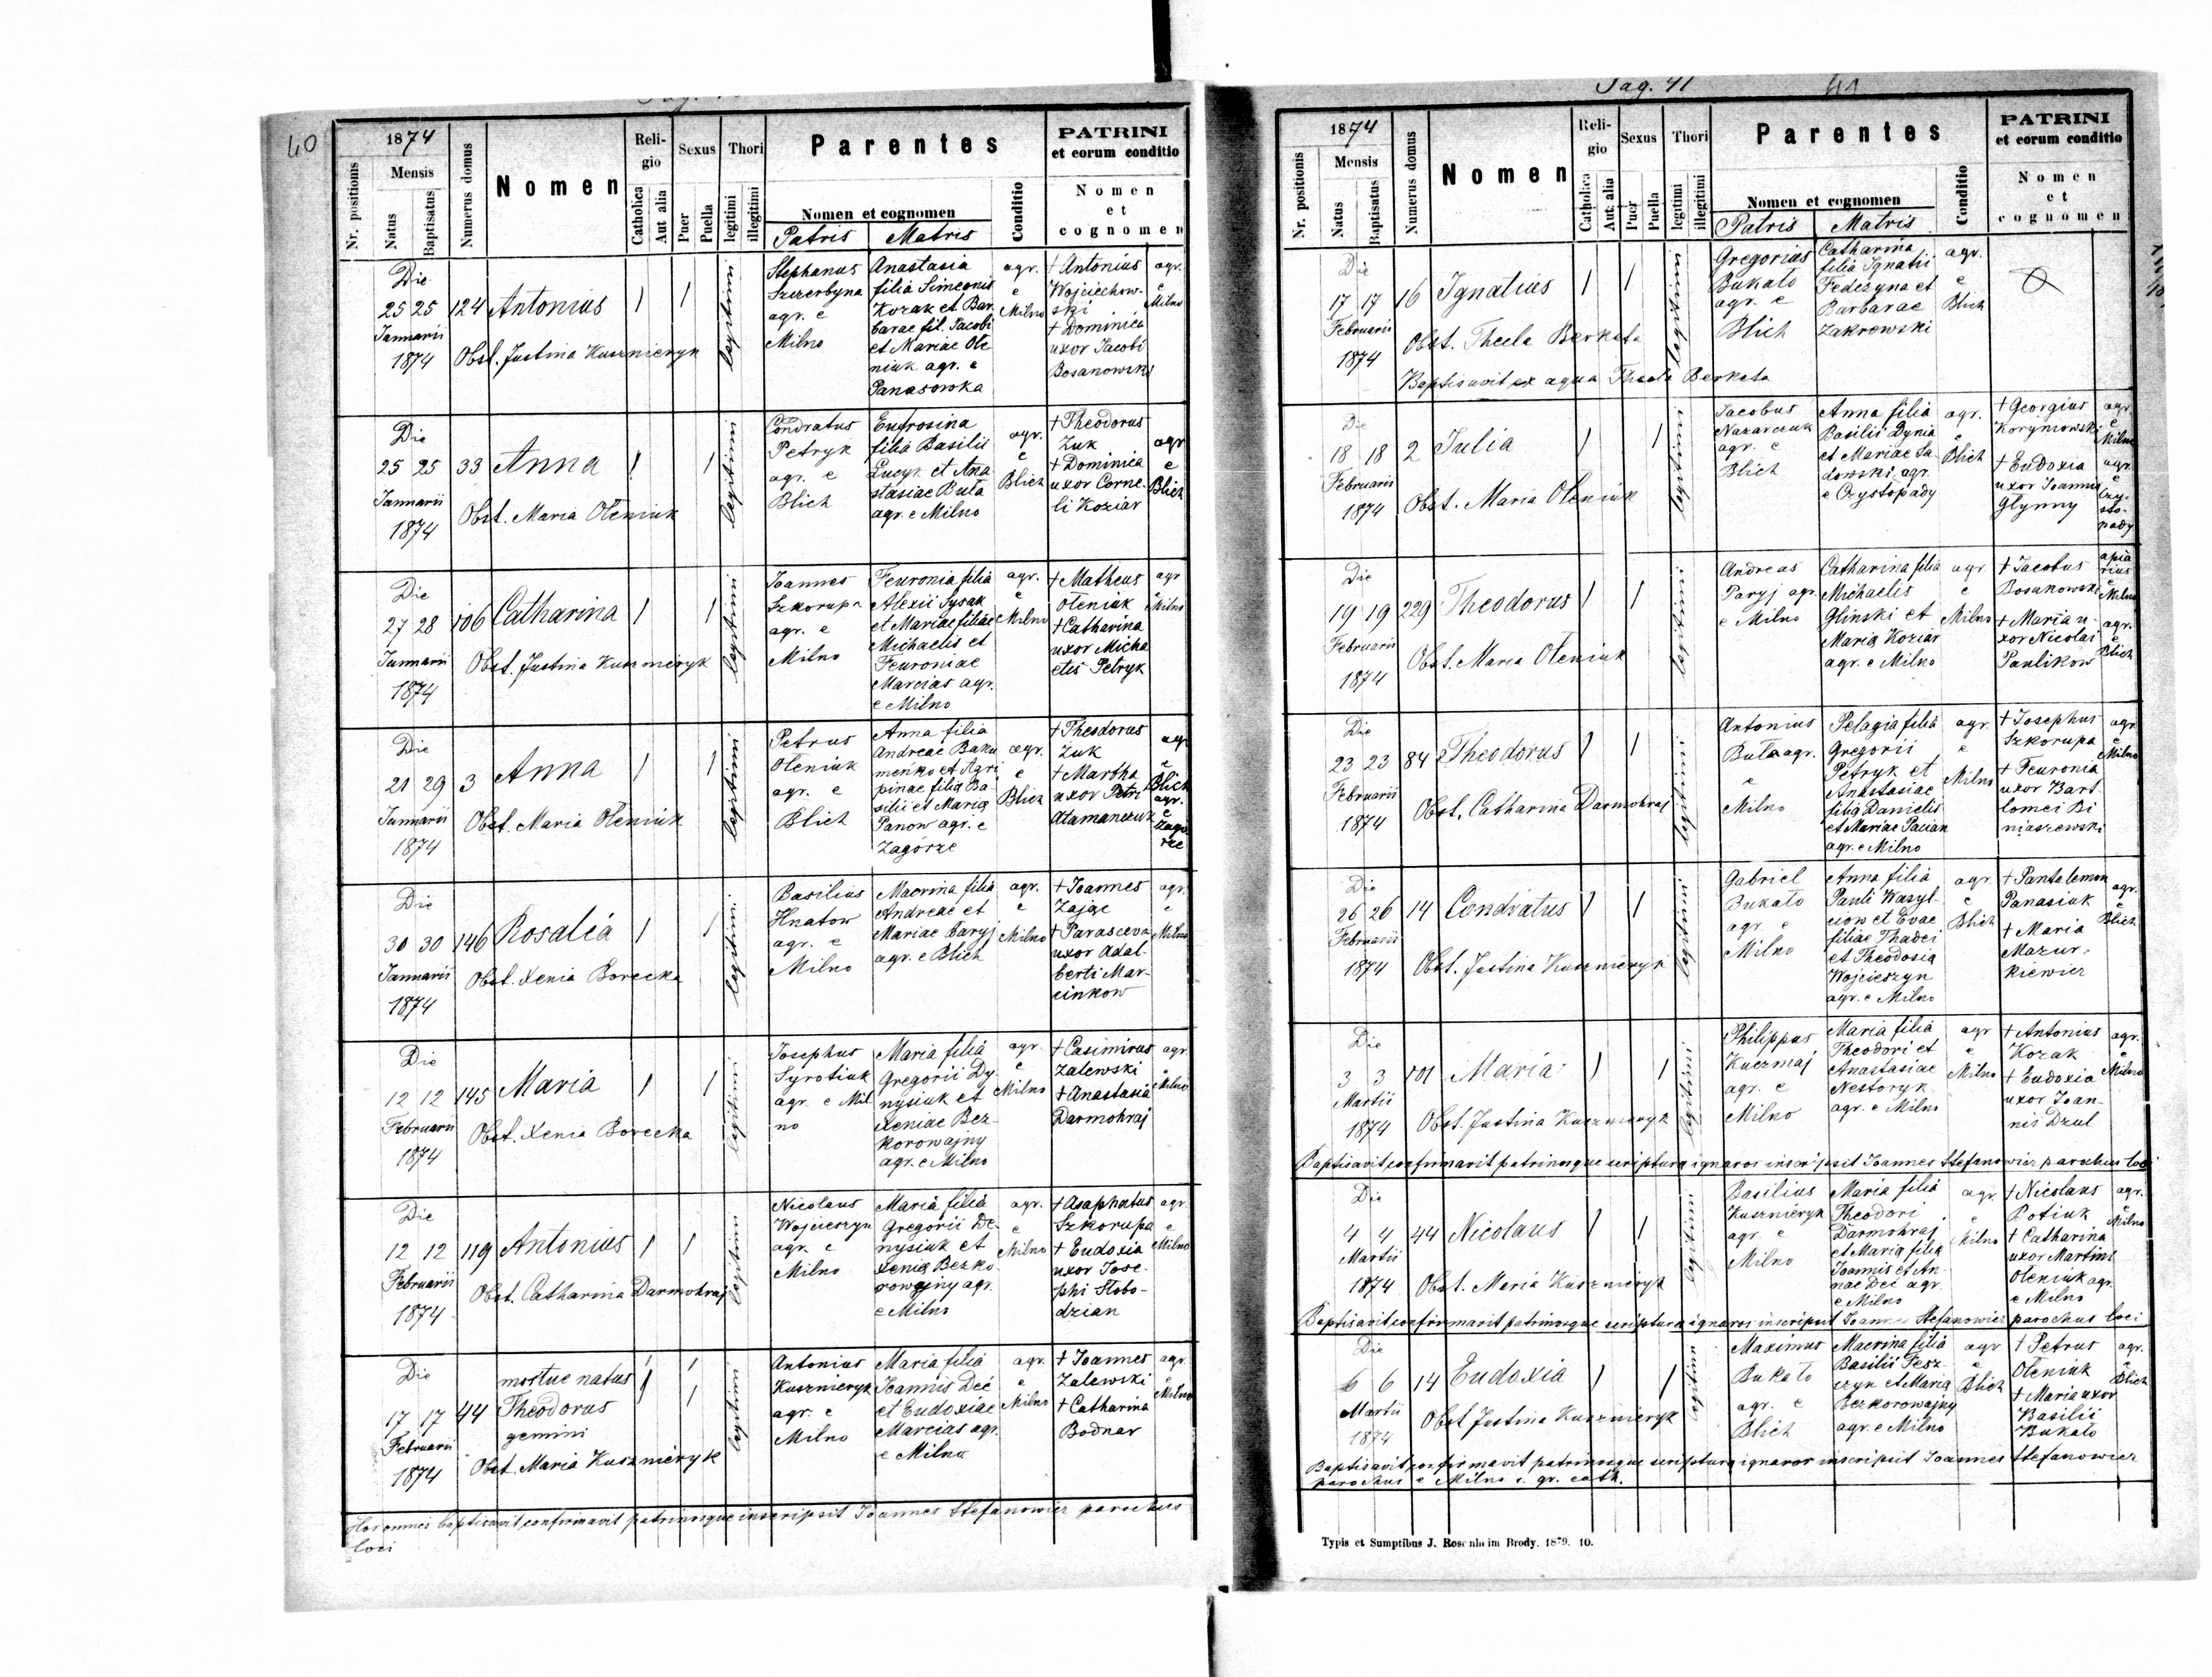 40
1874
Nr. positionis
Mensis
Natus
Baptisatus
Numerus domus
Nomen
Reli-
gio
Catholica
Aut alia
Sexus
Puer
Puella
Thori
legitimi
illegitimi
Parentes
Nomen et cognomen
Patris
Matris
Conditio
PATRINI
et eorum conditio
Nomen
et
cognomen
Die
25 25
Januarii
1874
124
Antonius
Obst. Justina Kusznieryk
legitimi
Stephanus
Szczerbyna
agr. e
Milno
Anastasia
filia Simeonis
Kozak et Bar
barae fil. Jacobi
et Mariae Ole
niuk agr. e
Panasowka
agr.
e
Milno
† Antonius
Wojciechow-
ski
† Dominica
uxor Jacobi
Bosanowski
agr.
e
Milno
Die
25 25
Januarii
1874
33
Anna
Obst. Maria Oleniuk
legitimi
Condratus
Petryk
agr. e
Blich
Eufrosina
filia Basilii
Lucyk et Ana
stasiae Buta
agr. e Milno
agr.
e
Blich
† Theodorus
Zuk
† Dominica
uxor Corne-
li Koziar
agr
e
Blich
Die
27 28
Januarii
1874
106
Catharina
Obst. Justina Kusznieryk
legitimi
Joannes
Szkorupa
agr. e
Milno
Feuronia filia
Alexii Sysak
et Mariae filiae
Michaelis et
Feuroniae
Marcias agr.
e Milno
agr.
e
Milno
† Matheus
Oleniuk
† Catharina
uxor Micha
elis Petryk
agr
e
Milno
Die
21 29
Januarii
1874
3
Anna
Obst. Maria Oleniuk
legitimi
Petrus
Oleniuk
agr. e
Blich
Anna filia
Andreae Baku
menko et Agri
pinae filia Ba
silii et Maria
Panow agr. e
Zagorze
agr.
e
Blich
† Theodorus
Zuk
† Martha
uxor Petri
Atamanczuk
agr
e
Blich
agr.
e
Zago
rze
Die
30 30
Januarii
1874
146
Rosalia
Obst. Xenia Borecka
legitimi
Basilius
Hnatow
agr. e
Milno
Macrina filia
Andreae et
Mariae Paryj
agr. e Blich
agr.
e
Milno
† Joannes
Zajac
† Parasceva
uxor Adal-
berti Mar-
cinkow
agr.
e
Milno
Die
12 12
Februarii
1874
145
Maria
Obst. Xenia Borecka
legitimi
Josephus
Syrotiuk
agr. e Mil
no
Maria filia
Gregorii Dy-
nysiuk et
Xeniae Bez-
korowajny
agr. e Milno
agr.
e
Milno
† Casimirus
Zalewski
† Anastasia
Darmohraj
agr.
e
Milno
Die
12 12
Februarii
1874
119
Antonius
Obst. Catharina Darmohraj
legitimi
Nicolaus
Wojcieszyn
agr. e
Milno
Maria filia
Gregorii De-
nysiuk et
Xenia Bezko-
rowajny agr.
e Milno
agr.
e
Milno
† Asaphatus
Szkorupa
† Eudoxia
uxor Jose-
phi Slobo-
dzian
agr
e
Milno
Die
17 17
Februarii
1874
44
mortue natus
Theodorus
gemini
Obst. Maria Kusznieryk
legitimi
Antonius
Kusznieryk
agr. e
Milno
Maria filia
Joannis Dec
et Eudoxiae
Marcias agr.
e Milno
agr.
e
Milno
† Joannes
Zalewski
† Catharina
Bodnar
agr.
e
Milno
Hos omnes baptisavit confirmavit patrinosque inscripsit Joannes Stefanowicz parochus
loci
Pag. 41
41
1874
Nr. positionis
Mensis
Natus
Baptisatus
Numerus domus
Nomen
Reli-
gio
Catholica
Aut alia
Sexus
Puer
Puella
Thori
legitimi
illegitimi
Parentes
Nomen et cognomen
Patris
Matris
Conditio
PATRINI
et eorum conditio
Nomen
et
cognomen
Die
17 17
Februarii
1874
16
Ignatius
Obst. Thecla Berkata
Baptisavit ex aqua Thecla Berkata
legitimi
Gregorius
Bukato
agr. e
Blich
Catharina
filia Ignatii
Federyna et
Barbarae
Zakrewski
agr.
e
Blich
Die
18 18
Februarii
1874
2
Julia
Obst. Maria Oleniuk
legitimi
Jacobus
Nazarczuk
agr. e
Blich
Anna filia
Basilii Dynia
et Mariae Sa-
dowski agr.
e Czystopady
agr.
e
Blich
† Georgius
Korynowski
† Eudoxia
uxor Joannis
Glynny
agr.
e
Milno
agr.
e
Czy-
sto-
pady
Die
19 19
Februarii
1874
229
Theodorus
Obst. Maria Oleniuk
legitimi
Andreas
Paryj agr.
e Milno
Catharina filia
Michaelis
Glinski et
Maria Koziar
agr. e Milno
agr
e
Milno
† Jacobus
Bosakowski
† Maria u-
xor Nicolai
Paulikow
apia
rius
e
Milno
agr.
e
Blich
Die
23 23
Februarii
1874
84
Theodorus
Obst. Catharina Darmohraj
legitimi
Antonius
Buta agr.
e
Milno
Pelagia filia
Gregorii
Petryk et
Anastasiae
filia Danielis
et Mariae Pacian
agr. e Milno
agr.
e
Milno
† Josephus
Szkorupa
† Feuronia
uxor Bart-
lomei Bi
niaszewski
agr
e
Milno
Die
26 26
Februarii
1874
14
Condratus
Obst. Justina Kusznieryk
legitimi
Gabriel
Bukato
agr. e
Milno
Anna filia
Pauli Wasyl-
ciow et Evae
filiae Thadei
et Theodosia
Wojcieszyn
agr. e Milno
agr.
e
Blich
† Pantalemon
Panasiuk
† Maria
Mazur-
kiewicz
agr.
e
Blich
Die
3 3
Martii
1874
101
Maria
Obst. Justina Kusznieryk
legitimi
Philippus
Kuczmaj
agr. e
Milno
Maria filia
Theodori et
Anastasiae
Nestoryk
agr. e Milno
agr
e
Milno
† Antonius
Kozak
† Eudoxia
uxor Joan-
nis Dzul
agr.
e
Milno
Baptisavit confirmavit patrinosque scriptura ignaros inscripsit Joannes Stefanowicz parochus loci
Die
4 4
Martii
1874
44
Nicolaus
Obst. Maria Kusznieryk
legitimi
Basilius
Kusznieryk
agr. e
Milno
Maria filia
Theodori
Darmohraj
et Maria filia
Joannis et An-
nae Dec agr.
e Milno
agr.
e
Milno
† Nicolaus
Potiuk
† Catharina
uxor Martini
Oleniuk agr.
e Milno
agr.
e
Milno
Baptisavit confirmavit patrinosque scriptura ignaros inscripsit Joannes Stefanowicz parochus loci
Die
6 6
Martii
1874
14
Eudoxia
Obst Justina Kusznieryk
legitima
Maximus
Bukato
agr. e
Blich
Macrina filia
Basilii Fesz-
czyn et Maria
Bezkorowajny
agr. e Milno
agr
e
Blich
† Petrus
Oleniuk
† Maria uxor
Basilii
Bukato
agr.
e
Blich
Baptisavit confirmavit patrinosque scriptura ignaros inscripsit Joannes Stefanowicz
parochus e Milno r. gr. cath.
Typis et Sumptibus J. Rosenheim Brody. 1879. 10.